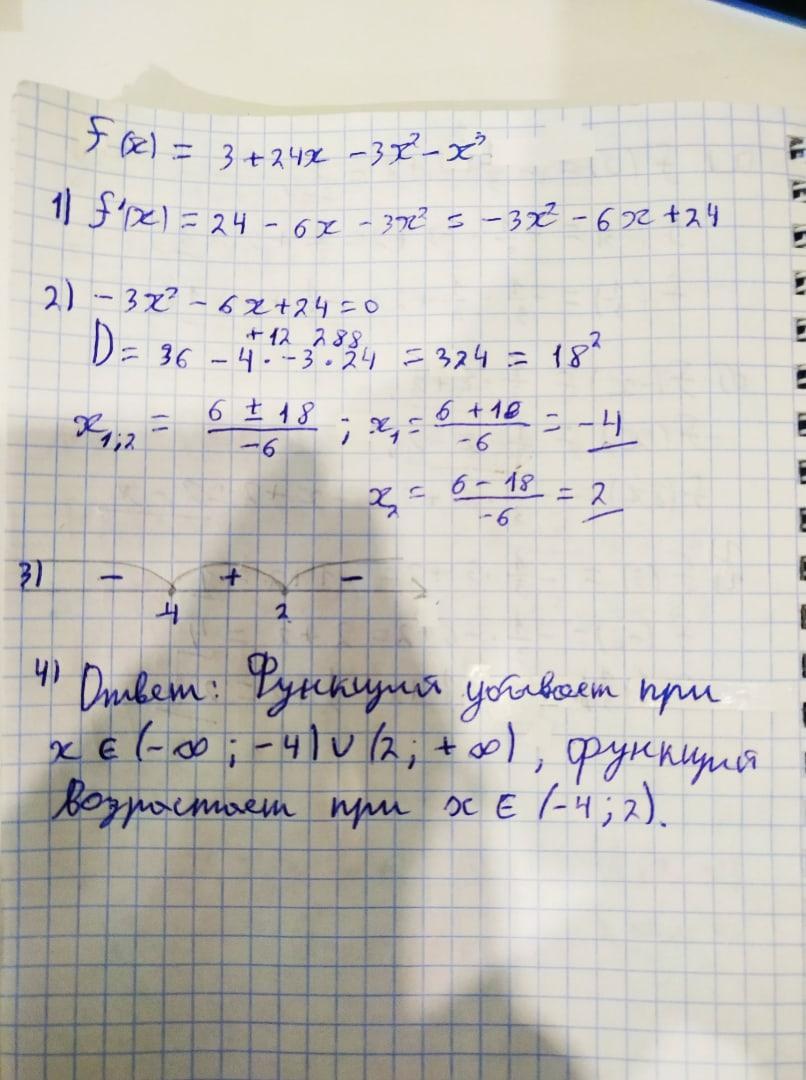 f(x) = 3 + 24x - 3x² - x³
1) f'(x) = 24 - 6x - 3x² = -3x² - 6x + 24
2) -3x² - 6x + 24 = 0
+12 288
D = 36 - 4 · -3 · 24 = 324 = 18²
x₁;₂ = (6 ± 18)/-6 ; x₁ = (6 + 18)/-6 = -4
x₂ = (6 - 18)/-6 = 2
3) - + -
-4 2
4) Ответ: Функция убывает при
x ∈ (-∞ ; -4) ∪ (2 ; +∞), функция
возрастает при x ∈ (-4 ; 2).